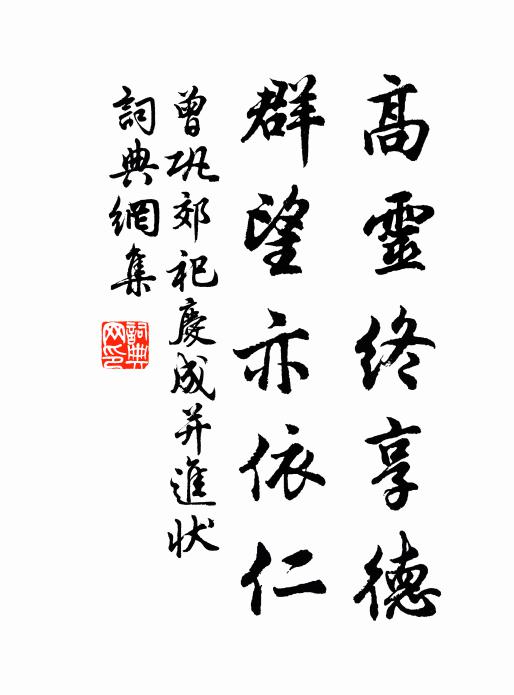 高靈終享德
群望亦依仁
曾巩郊祀慶成并進狀
詞典網集
詞典网印